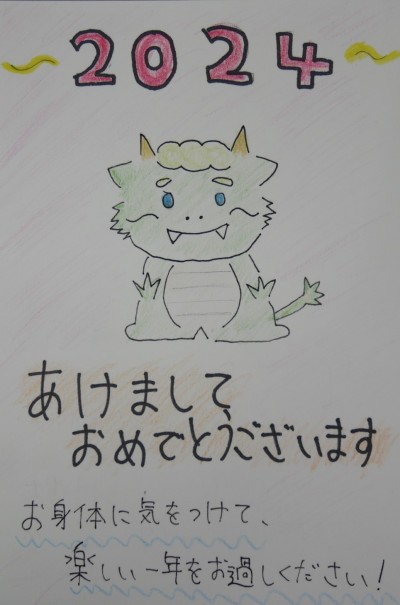 2024
あけまして、
おめでとうございます
お身体に気をつけて、
楽しい一年をお過しください!